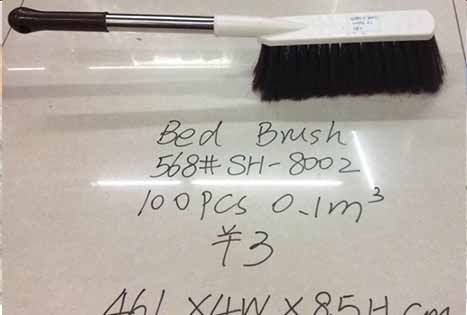 Bed Brush
568# SH-8002
100PCS 0.1m³
¥3
46L X4W X 8.5H cm